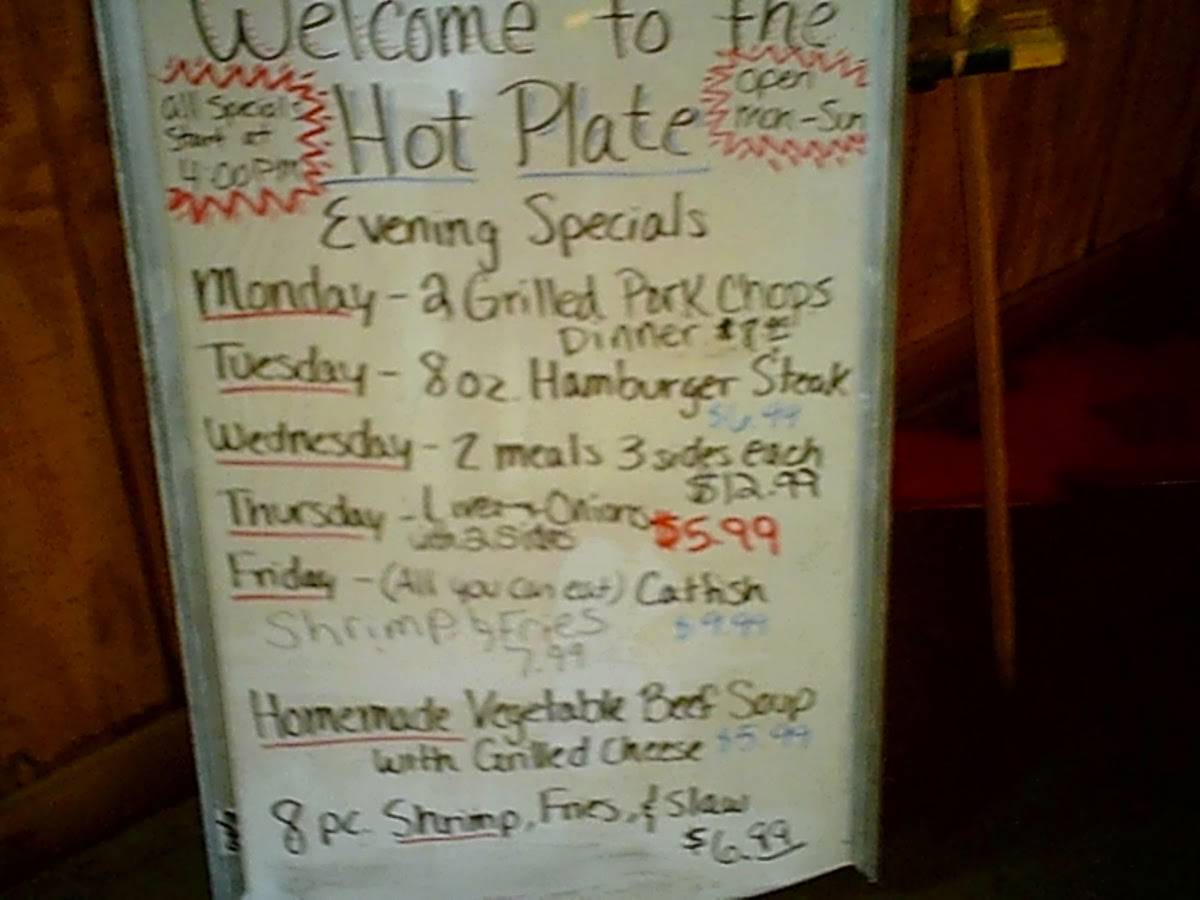 Welcome to the
all Specials
Start at
4:00PM
Hot Plate
open
mon-Sun
Evening Specials
Monday - 2 Grilled Pork Chops
Dinner
Tuesday - 8oz. Hamburger Steak
$6.99
Wednesday - 2 meals 3 sides each
$12.99
Thursday - Liver + Onions $5.99
with 2 Sides
Friday - (All you can eat) Catfish
$9.99
Shrimp & Fries
7.99
Homemade Vegetable Beef Soup
with Grilled Cheese $5.99
8 pc. Shrimp, Fries, & Slaw
$6.99